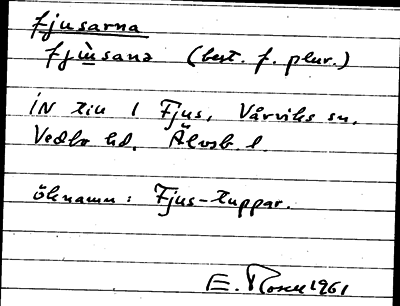 Fjusarna
fjùsana (best. f. plur.)
IN till 1 Fjus, Vårviks sn,
Vedbo hd. Älvsb l.
öknamn: Fjus-tuppar.
E. Rosell 1961